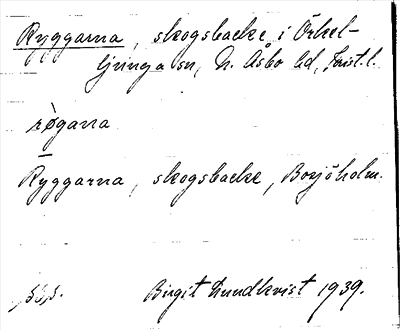 Ryggarna, skogsbacke i Örkel-
ljunga sn, N. Åsbo hd, Krist. l.
rø̀gana
Ryggarna, skogsbacke, Bosjöholm.
Birgit Lundkvist 1939.